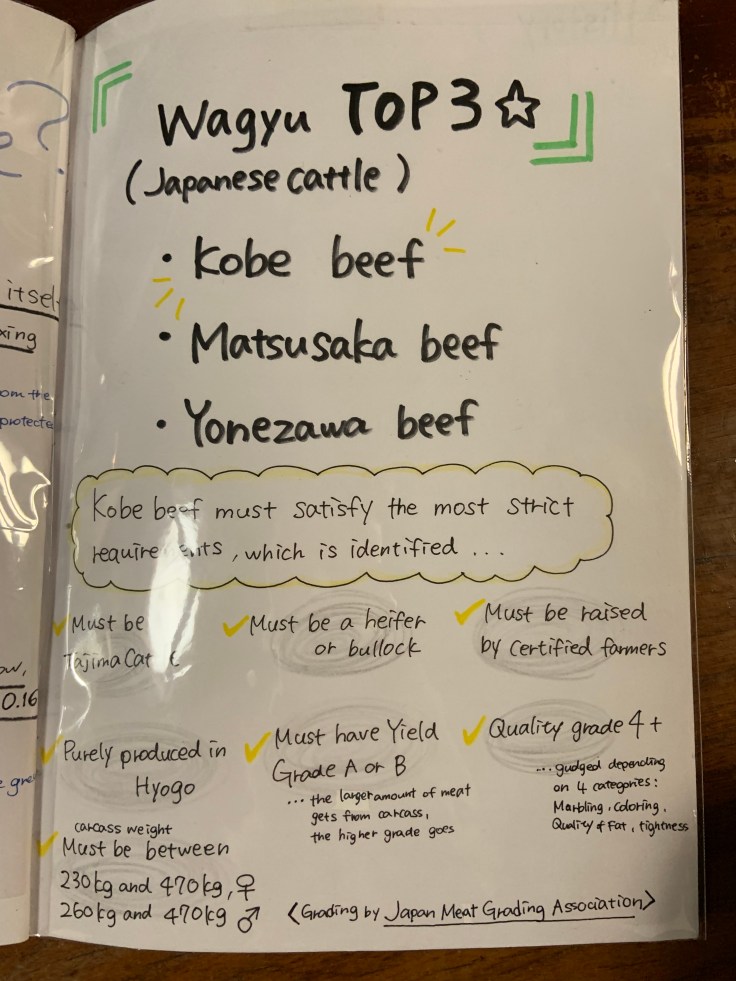 Wagyu TOP 3 ☆
(Japanese cattle)
・Kobe beef
・Matsusaka beef
・Yonezawa beef
Kobe beef must satisfy the most strict
requirements, which is identified ...
Must be
Tajima Cattle
Must be a heifer
or bullock
Must be raised
by certified farmers
Purely produced in
Hyogo
Must have Yield
Grade A or B
... the larger amount of meat
gets from carcass,
the higher grade goes
Quality grade 4+
... gudged depending
on 4 categories:
Marbling, coloring,
Quality of Fat, tightness
carcass weight
Must be between
230kg and 470kg, ♀
260kg and 470kg ♂
〈Grading by Japan Meat Grading Association〉
itself
xing
om the
protecte
ow,
0.16
e gre